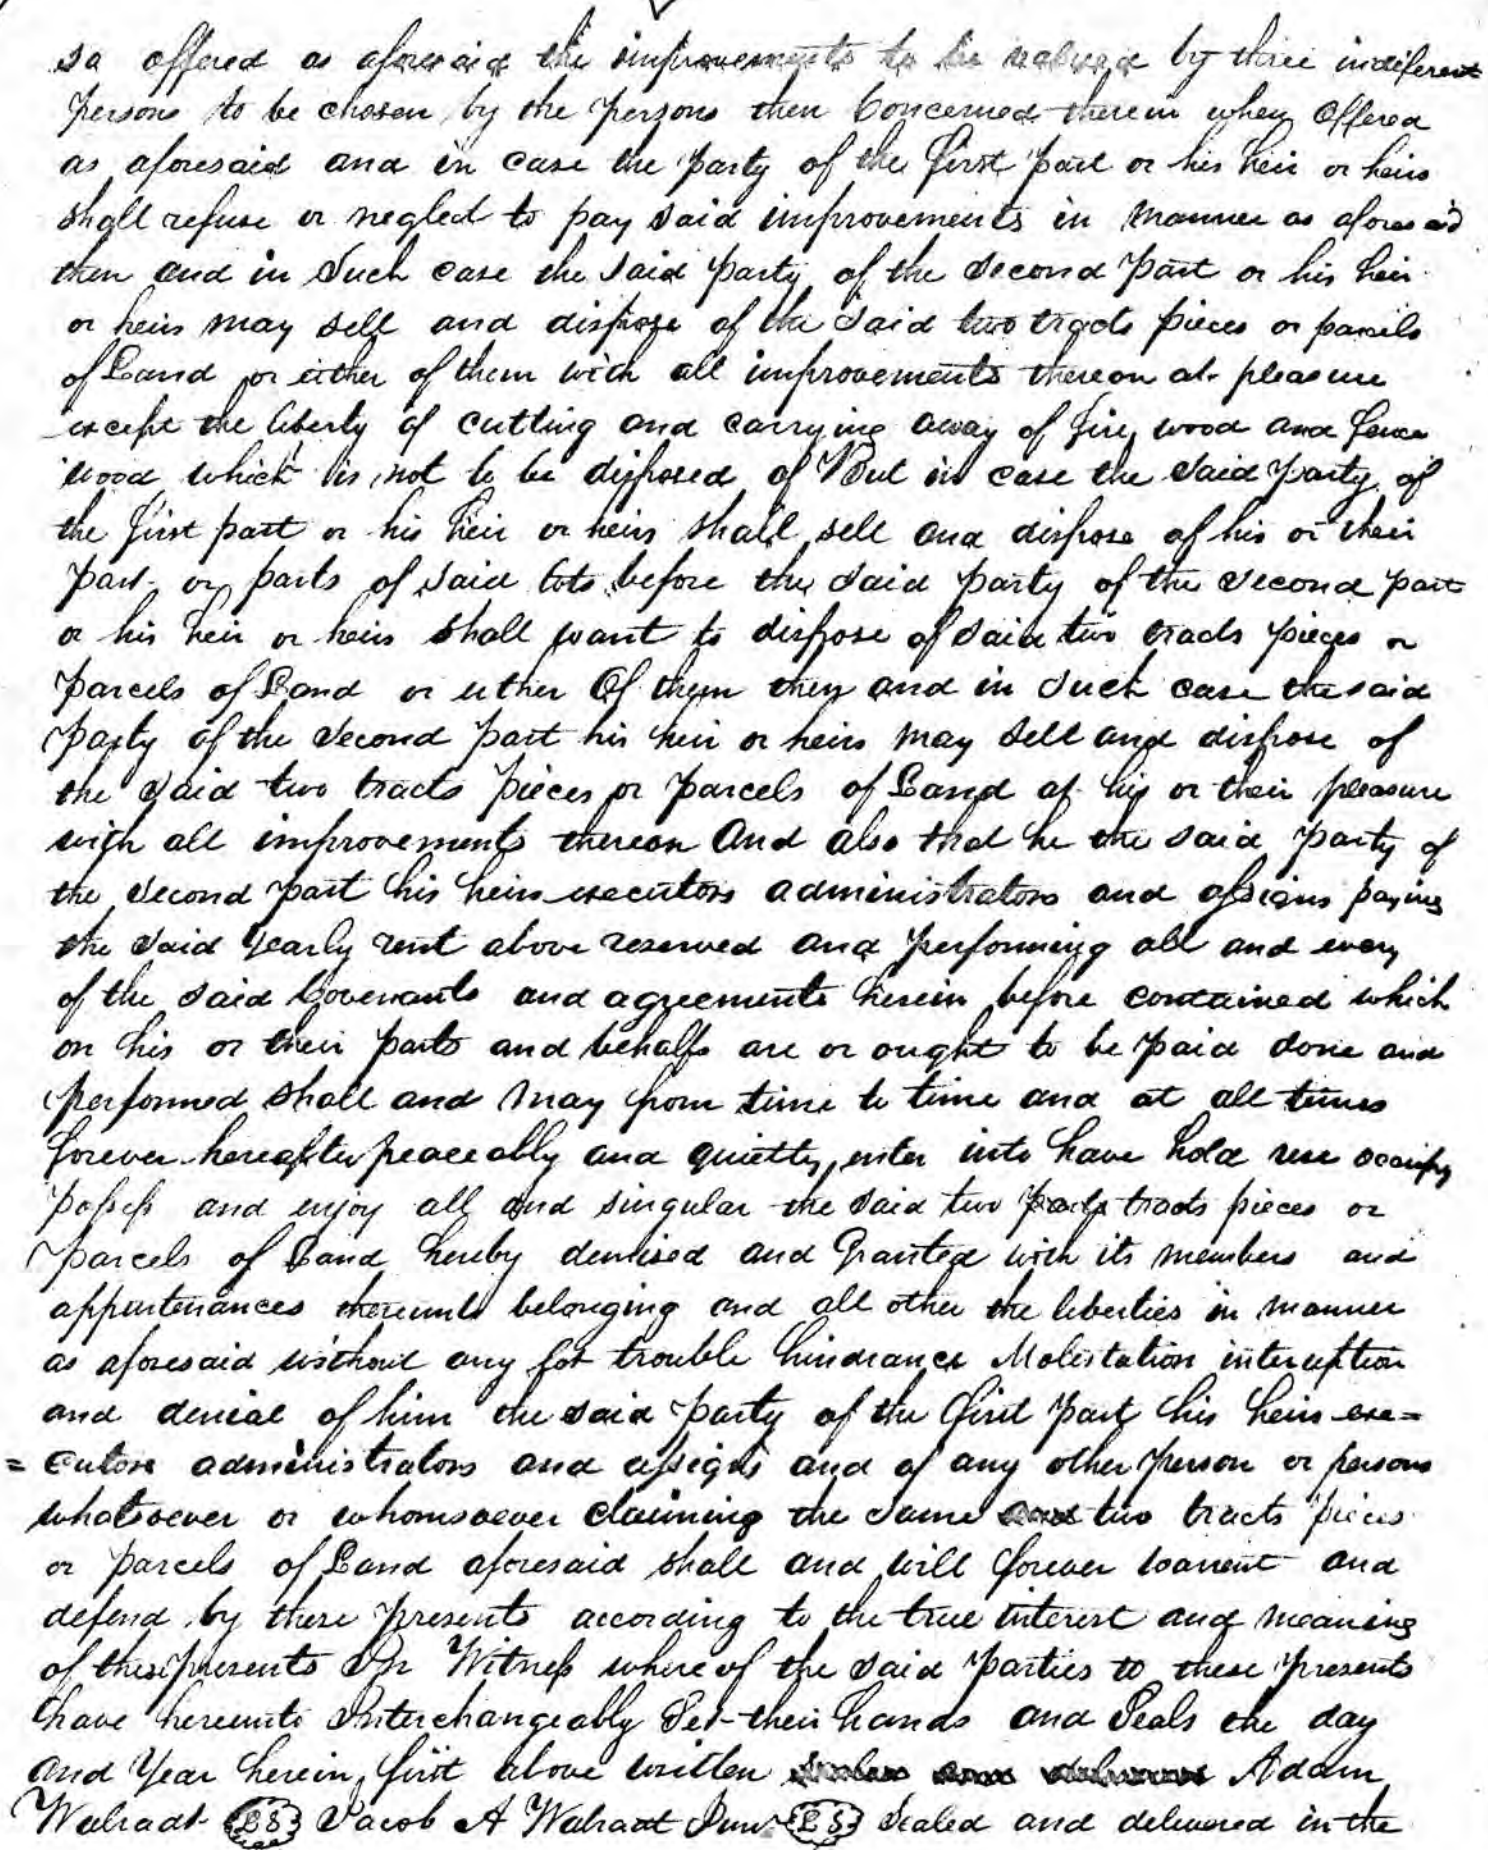 so offered as aforesaid the improvements to be valued by three indiferent
persons to be chosen by the persons then Concerned therein when Offered
as aforesaid and in case the party of the first part or his heir or heirs
shall refuse or neglect to pay said improvements in manner as aforesaid
then and in Such case the said party of the Second Part or his heir
or heirs may sell and dispose of the said two tracts pieces or parcels
of Land or either of them with all improvements thereon at pleasure
except the liberty of cutting and carrying away of fire wood and fence
wood which is not to be disposed of But in case the said Party of
the first part or his heir or heirs shall sell and dispose of his or their
part or parts of said lots before the said party of the Second part
or his heir or heirs shall want to dispose of said two tracts pieces or
parcels of Land or either Of them then and in Such case the said
Party of the Second part his heir or heirs may Sell and dispose of
the Said two tracts pieces or parcels of Land at his or their pleasure
with all improvements thereon And also that he the said party of
the Second part his heirs executors administrators and assigns paying
the said yearly rent above reserved and performing all and every
of the said Covenants and agreements herein before contained which
on his or their parts and behalfs are or ought to be paid done and
performed shall and may from time to time and at all times
forever hereafter peaceably and quietly enter into have hold use occupy
possess and enjoy all and singular the said two tracts pieces or
parcels of Land hereby demised and Granted with its members and
appurtenances thereunto belonging and all other the liberties in manner
as aforesaid without any trouble hindrance Molestation interuption
and denial of him the said party of the first part his heirs exe=
=cutors administrators and assigns and of any other person or persons
whatsoever or whomsoever claiming the same two tracts pieces
or parcels of Land aforesaid shall and will forever warrent and
defend by these presents according to the true interest and meaning
of these presents In Witness where of the said Parties to these presents
have hereunto Interchangeably Set their hands and Seals the day
and Year herein first above written Adam
Walradt L S Jacob A Walradt Junr L S Sealed and delivered in the